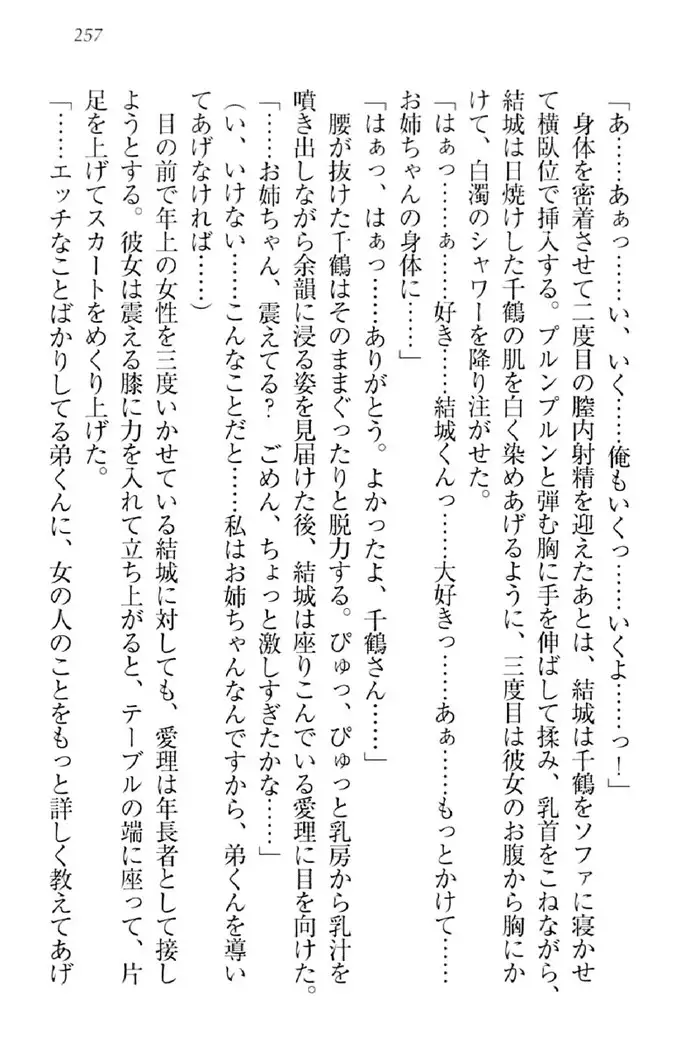 257
「あ……あぁっ……い、いく……俺もいくっ……いくよ……っ！」
　身体を密着させて二度目の膣内射精を迎えたあとは、結城は千鶴をソファに寝かせ
て横臥位で挿入する。プルンプルンと弾む胸に手を伸ばして揉み、乳首をこねながら、
結城は日焼けした千鶴の肌を白く染めあげるように、三度目は彼女のお腹から胸にか
けて、白濁のシャワーを降り注がせた。
「はぁっ……ぁ……好き……結城くんっ……大好きっ……あぁ……もっとかけて……
お姉ちゃんの身体に……」
「はぁっ、はぁっ……ありがとう。よかったよ、千鶴さん……」
　腰が抜けた千鶴はそのままぐったりと脱力する。ぴゅっ、ぴゅっと乳房から乳汁を
噴き出しながら余韻に浸る姿を見届けた後、結城は座りこんでいる愛理に目を向けた。
「……お姉ちゃん、震えてる？　ごめん、ちょっと激しすぎたかな……」
（い、いけない……こんなことだと……私はお姉ちゃんなんですから、弟くんを導い
てあげなければ……）
　目の前で年上の女性を三度いかせている結城に対しても、愛理は年長者として接し
ようとする。彼女は震える膝に力を入れて立ち上がると、テーブルの端に座って、片
足を上げてスカートをめくり上げた。
「……エッチなことばかりしてる弟くんに、女の人のことをもっと詳しく教えてあげ